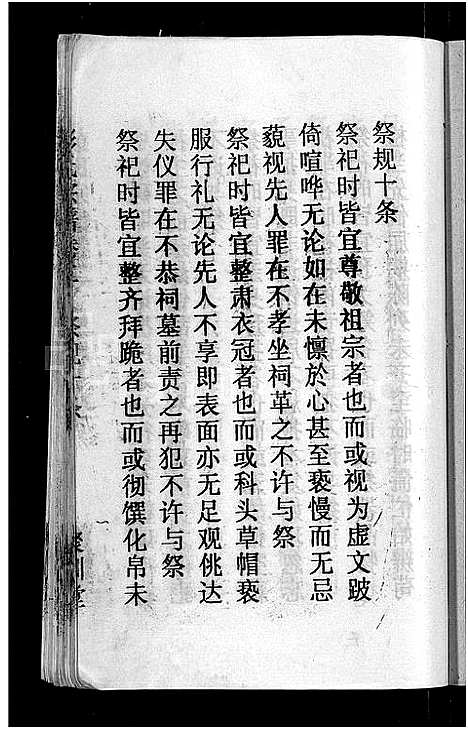 祭规十条
祭祀时皆宜尊敬祖宗者也而或视为虚文跛
倚喧哗无论如在未懔於心甚至亵慢而无忌
藐视先人罪在不孝坐祠革之不许与祭
祭祀时皆宜整肃衣冠者也而或科头草帽亵
服行礼无论先人不享即表面亦无足观佻达
失仪罪在不恭祠墓前责之再犯不许与祭
祭祀时皆宜整齐拜跪者也而或彻馔化帛未